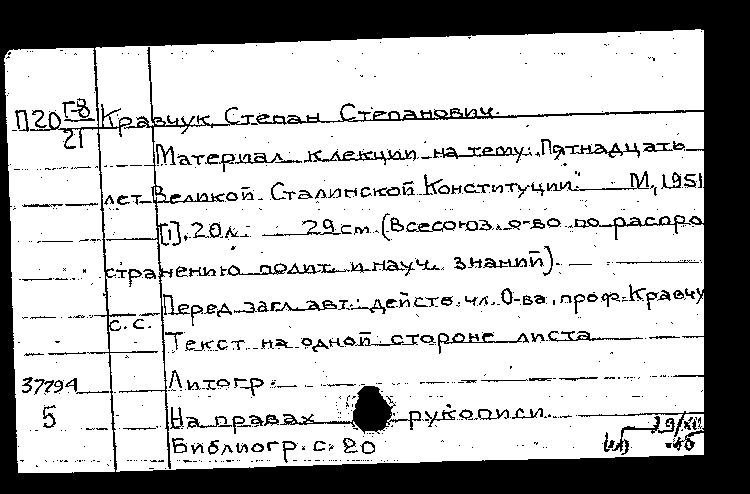 П20 Г-8/21 Кравчук, Степан Степанович.
Материал к лекции на тему: „Пятнадцать
лет Великой Сталинской Конституции." М, 1951
[1], 20 л. 29 см. (Всесоюз. о-во по распро
странению полит. и науч. знаний).
Перед загл. авт.: действ. чл. О-ва, проф. Кравчу
С. С.
Текст на одной стороне листа
37794 Литогр.
5 На правах рукописи.
Библиогр. с. 20
29/XII